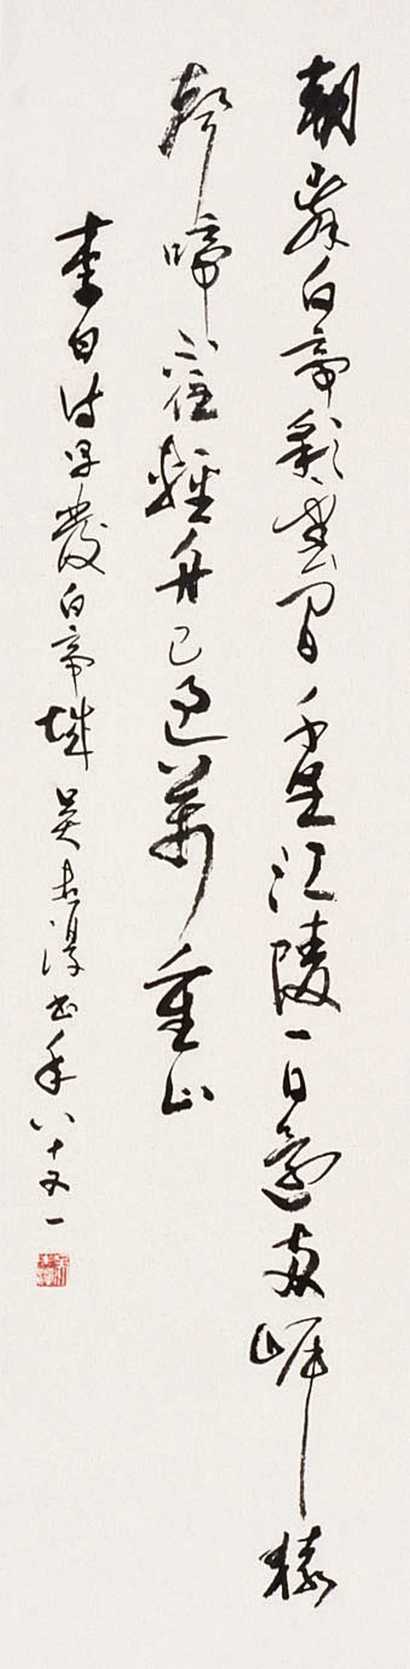 朝辞白帝彩雲間千里江陵一日還两岸猿
聲啼不住輕舟已過萬重山
李白诗早發白帝城 吴志淳书年八十又一